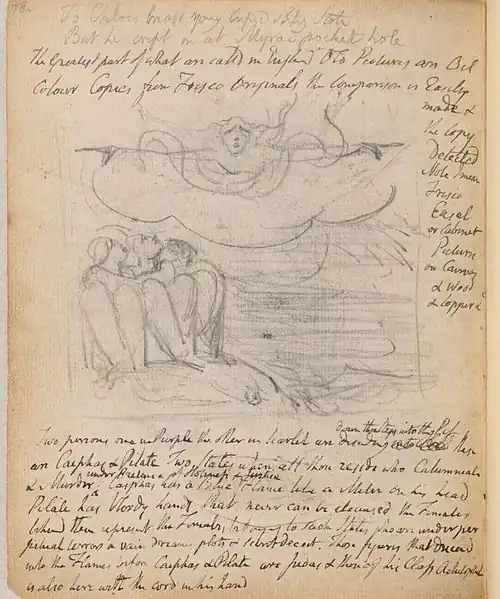 78
To Chloes breast young Cupid slily stole
But he crept in at Myras pocket hole
The Greatest part of what are calld in England Old Pictures are Oil
Colour Copies from Fresco Originals the Comparison is Easily
made &
the Copy
Detected
Note I mean
Fresco
Easel
or Cabinet
Picture
on Canvas
& Wood
& Copper &
down the Steps into the Pit
Two persons one in Purple the other in Scarlet are descending these
are Caiphas & Pilate Two States where all those reside who Calumniate
& Murder under Pretence of Holiness & Justice
Caiphas has a Blue Flame like a Miter on his head
Pilate has bloody hands that never can be cleansed the Females
behind them represent the Females belonging to such States who are under per
petual terrors & vain dreams plots & secret deceit. Those figures that descend
into the Flames before Caiphas & Pilate are Judas & those of his Class Achitophel
is also here with the cord in his hand